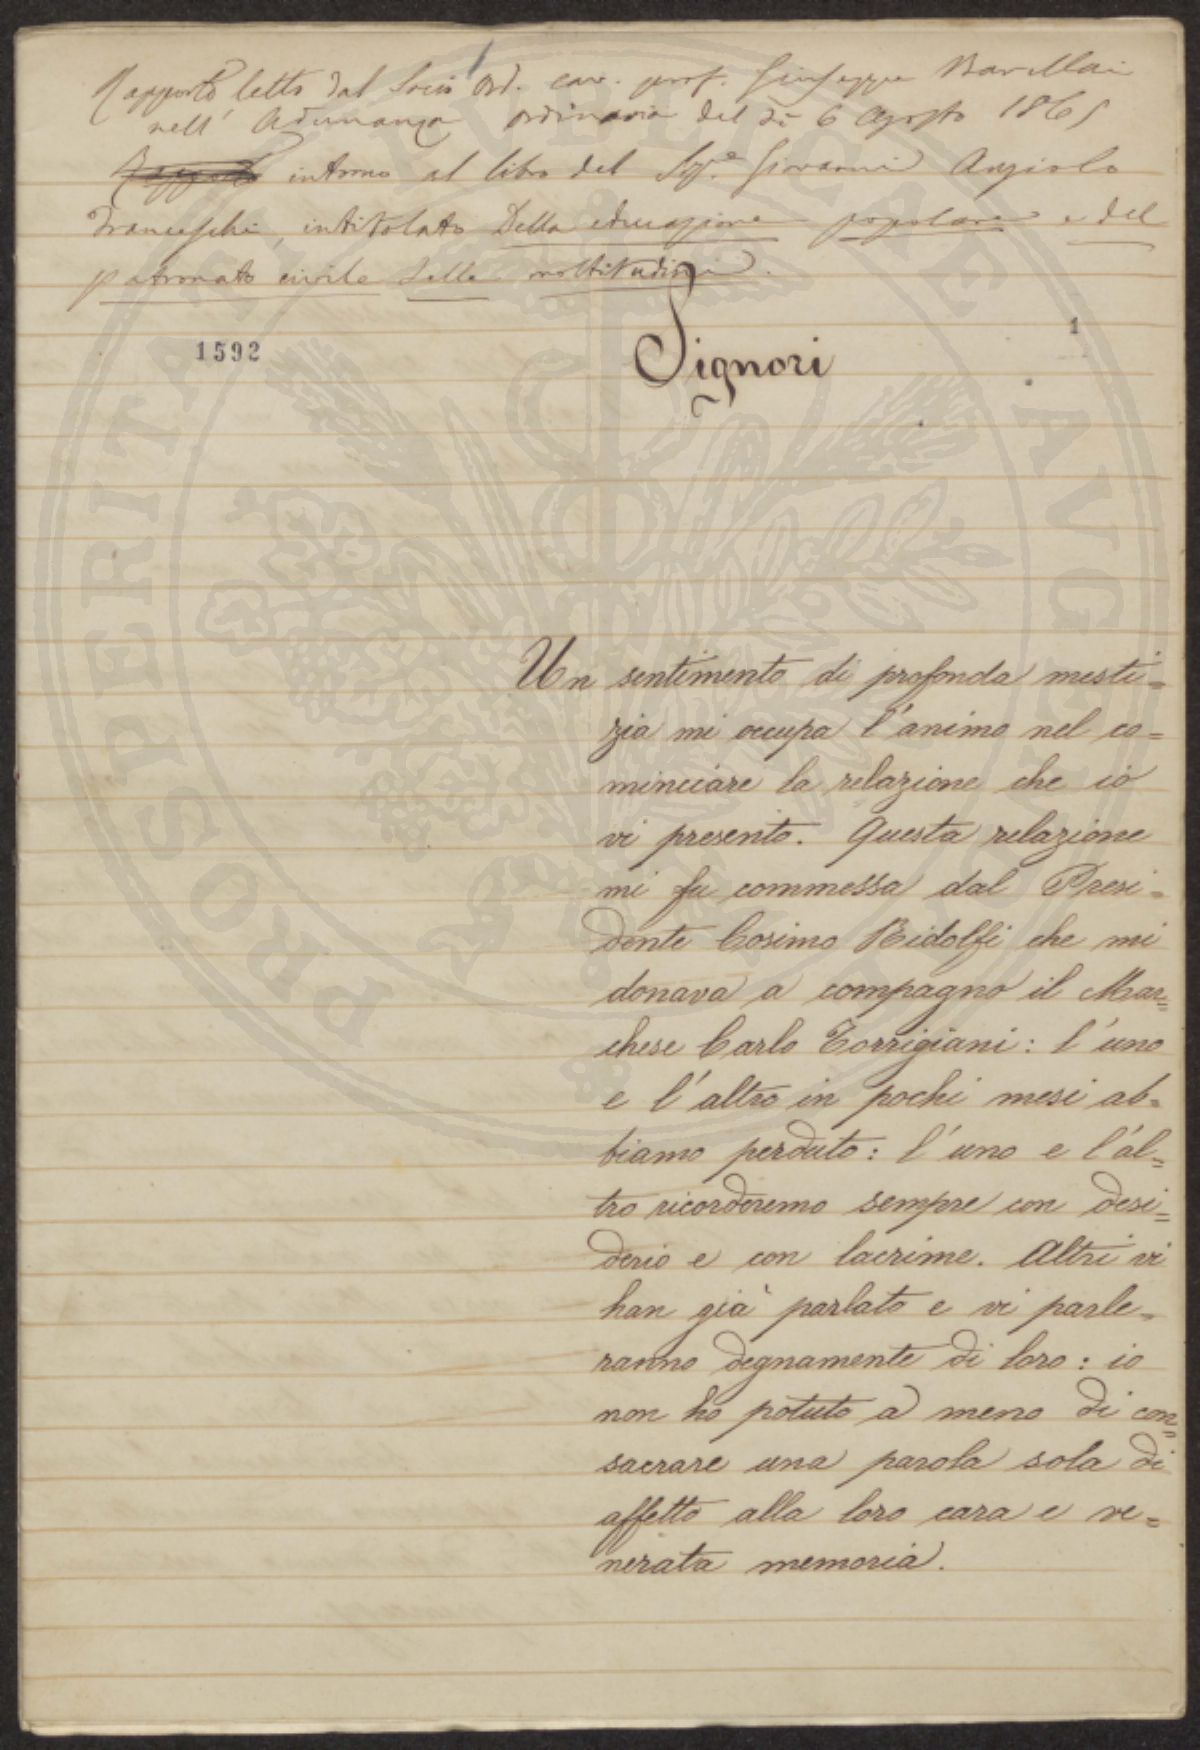 Rapporto letto dal Socio Ord. cav. prof. Giuseppe Barellai
nell' Adunanza ordinaria del dì 6 Agosto 1865
Rapporto intorno al libro del Sigr. Giovanni Angiolo
Franceschi, intitolato Della educazione popolare e del
patronato civile delle moltitudini.
1592
1
Signori
Un sentimento di profonda mesti=
zia mi occupa l'animo nel co=
minciare la relazione che io
vi presento. Questa relazione
mi fu commessa dal Presi=
dente Cosimo Ridolfi che mi
donava a compagno il Mar=
chese Carlo Torrigiani: l'uno
e l'altro in pochi mesi ab=
biamo perduto: l'uno e l'al=
tro ricorderemo sempre con desi=
derio e con lacrime. Altri vi
han già parlato e vi parle=
ranno degnamente di loro: io
non ho potuto a meno di con=
sacrare una parola sola di
affetto alla loro cara e ve=
nerata memoria.
PROSPERITATI PUBLICAE AUGENDAE